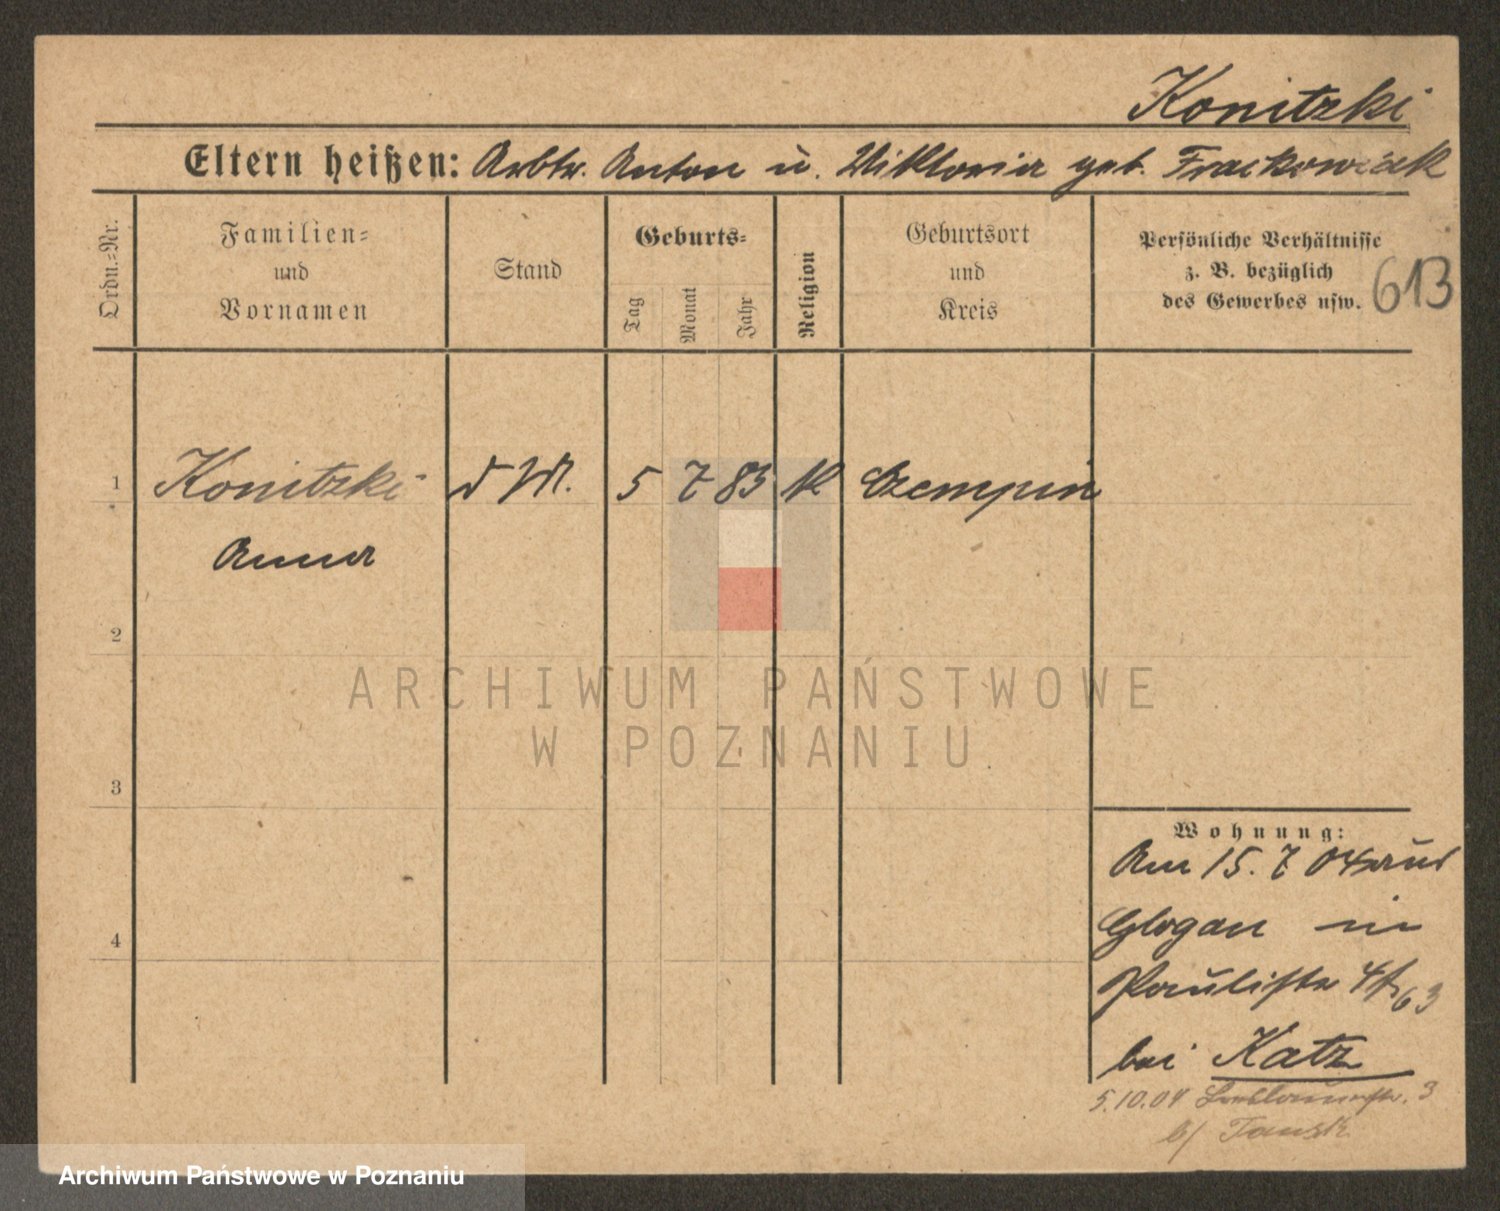 Konitzki
Eltern heißen: Arbtr. Anton u. Viktoria geb. Frackowiak
Ordn.=Nr.
Familien=
und
Vornamen
Stand
Geburts=
Tag
Monat
Jahr
Religion
Geburtsort
und
Kreis
Persönliche Verhältnisse
z. B. bezüglich
des Gewerbes usw.
613
1
Konitzki d M. 5 7 83 K Czempin
Anna
2
ARCHIWUM PAŃSTWOWE
W POZNANIU
3
Wohnung:
Am 15. 7 04 aus
Glogau in
Paulistr 4
63
4
bei Katz
5.10.04 3
b/
Archiwum Państwowe w Poznaniu